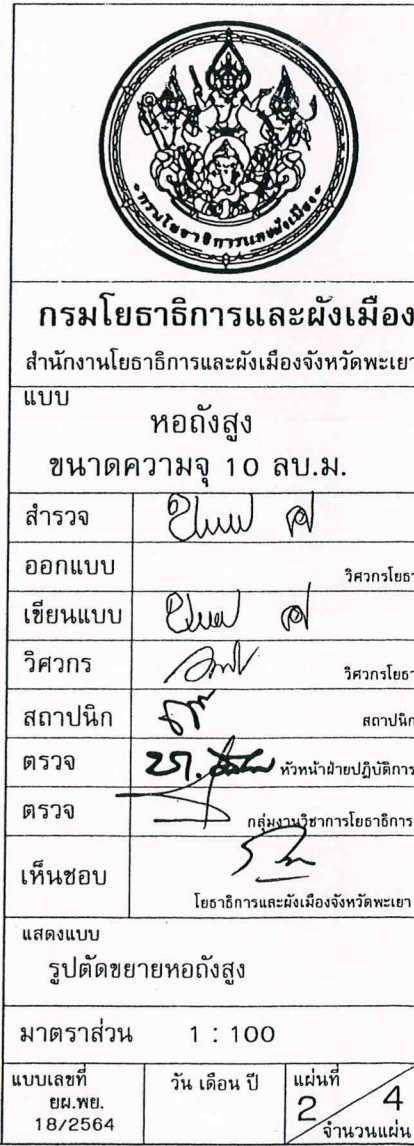 กรมโยธาธิการและผังเมือง
กรมโยธาธิการและผังเมือง
สำนักงานโยธาธิการและผังเมืองจังหวัดพะเยา
แบบ
หอถังสูง
ขนาดความจุ 10 ลบ.ม.
สำรวจ
ออกแบบ วิศวกรโยธา
เขียนแบบ
วิศวกร วิศวกรโยธา
สถาปนิก สถาปนิก
ตรวจ หัวหน้าฝ่ายปฏิบัติการ
ตรวจ กลุ่มงานวิชาการโยธาธิการ
เห็นชอบ
โยธาธิการและผังเมืองจังหวัดพะเยา
แสดงแบบ
รูปตัดขยายหอถังสูง
มาตราส่วน 1 : 100
แบบเลขที่ วัน เดือน ปี แผ่นที่
ยผ.พย.
18/2564
2 4
จำนวนแผ่น